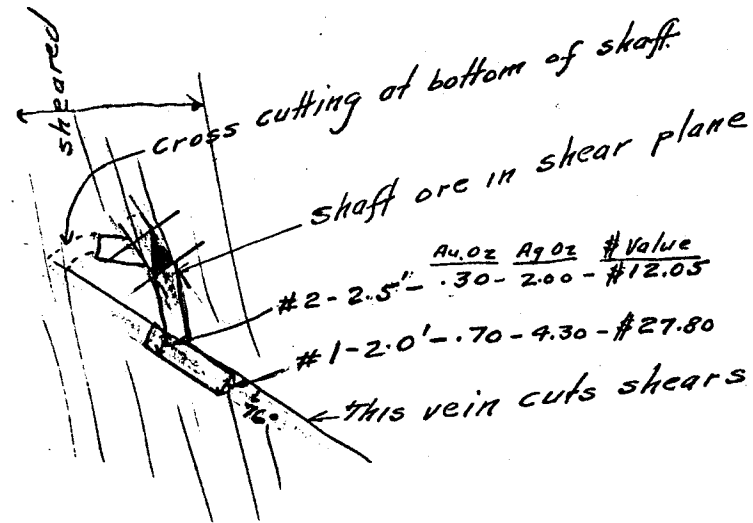 sheared
Cross cutting at bottom of shaft.
shaft ore in shear plane
Au.Oz Ag Oz $ Value
#2 - 2.5' - .30 - 2.00 - $12.05
#1 - 2.0' - .70 - 4.30 - $27.80
This vein cuts shears